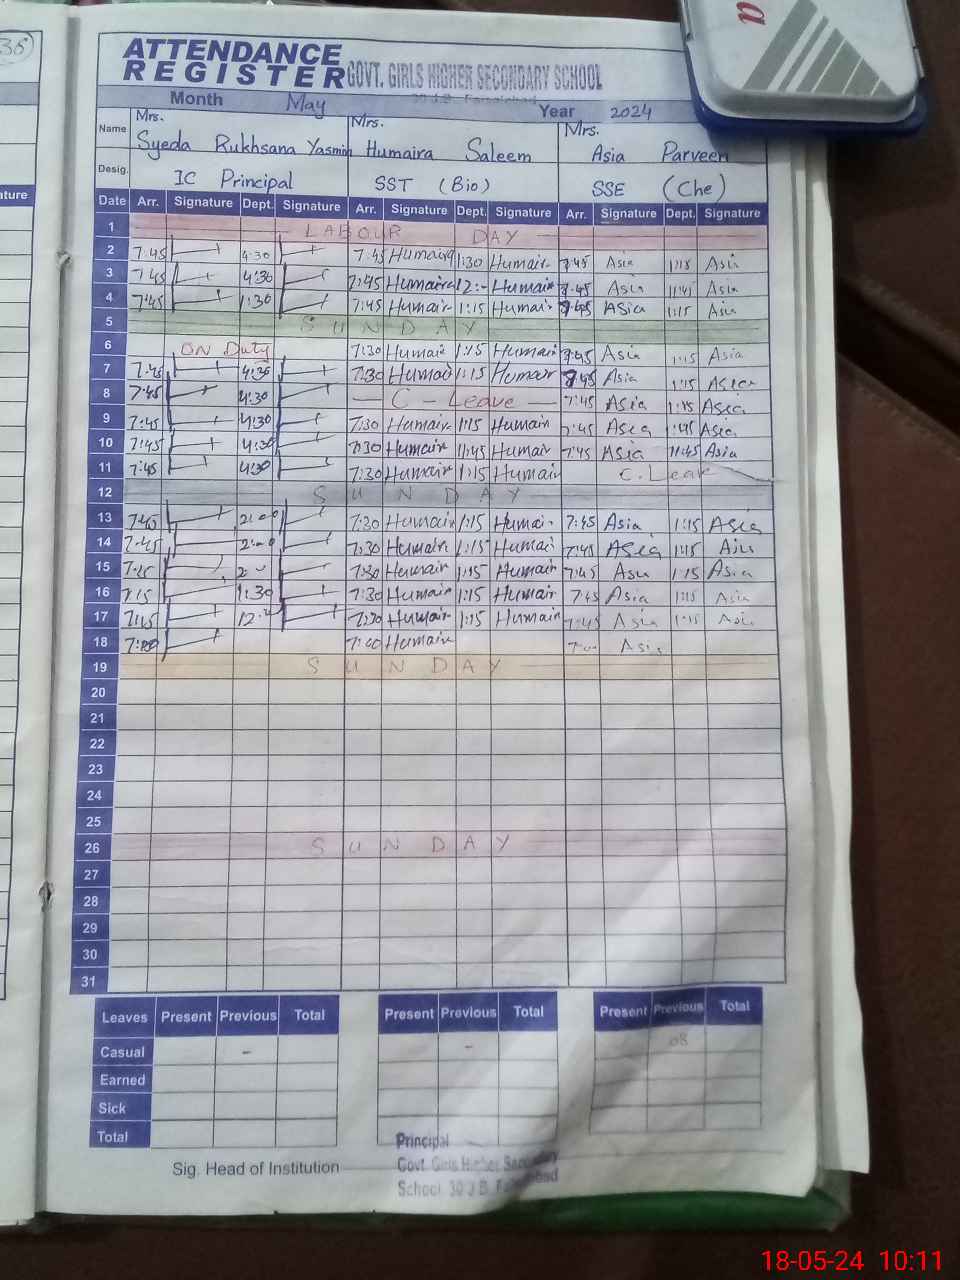 36
ATTENDANCE
REGISTER GOVT. GIRLS HIGHER SECONDARY SCHOOL
30 J.B. Faisalabad
Month May Year 2024
Name Mrs. Syeda Rukhsana Yasmin Mrs. Humaira Saleem Mrs. Asia Parveen
Desig. IC Principal SST (Bio) SSE (Che)
ature
Date Arr. Signature Dept. Signature Arr. Signature Dept. Signature Arr. Signature Dept. Signature
1 LABOUR DAY
2 7:45 4:30 7:45 Humaira 1:30 Humair 7:45 Asia 1:15 Asia
3 7:45 4:30 7:45 Humaira 12:- Humair 7:45 Asia 11:45 Asia
4 7:45 1:30 7:45 Humair 1:15 Humair 7:45 Asia 1:15 Asia
5 SUNDAY
6 ON Duty 7:30 Humair 1:15 Humair 7:45 Asia 1:15 Asia
7 7:45 4:30 7:30 Humair 1:15 Humair 7:45 Asia 1:15 Asia
8 7:45 4:30 — C - Leave — 7:45 Asia 1:15 Asia
9 7:45 4:30 7:30 Humair 1:15 Humair 7:45 Asia 1:45 Asia
10 7:45 4:30 7:30 Humair 11:45 Humair 7:45 Asia 11:45 Asia
11 7:45 4:30 7:30 Humair 1:15 Humair C.Leav
12 SUNDAY
13 7:40 2:00 7:30 Humair 1:15 Humair 7:45 Asia 1:15 Asia
14 7:45 7:30 Humair 1:15 Humair 7:45 Asia 1:15 Asia
15 7:30 Humair 1:15 Humair 7:45 Asia 1:15 Asia
16 7:15 1:30 7:30 Humair 1:15 Humair 7:45 Asia 1:15 Asia
17 7:30 Humair 1:15 Humair 7:45 Asia 1:15 Asia
18 Humair Asia
19 SUNDAY
20
21
22
23
24
25
26 SUNDAY
27
28
29
30
31
Leaves Present Previous Total Present Previous Total Present Previous Total
Casual - - 08
Earned
Sick
Total
Sig. Head of Institution
Principal
Govt. Girls Higher Secondary
School 30 J B. Faisalabad
18-05-24 10:11